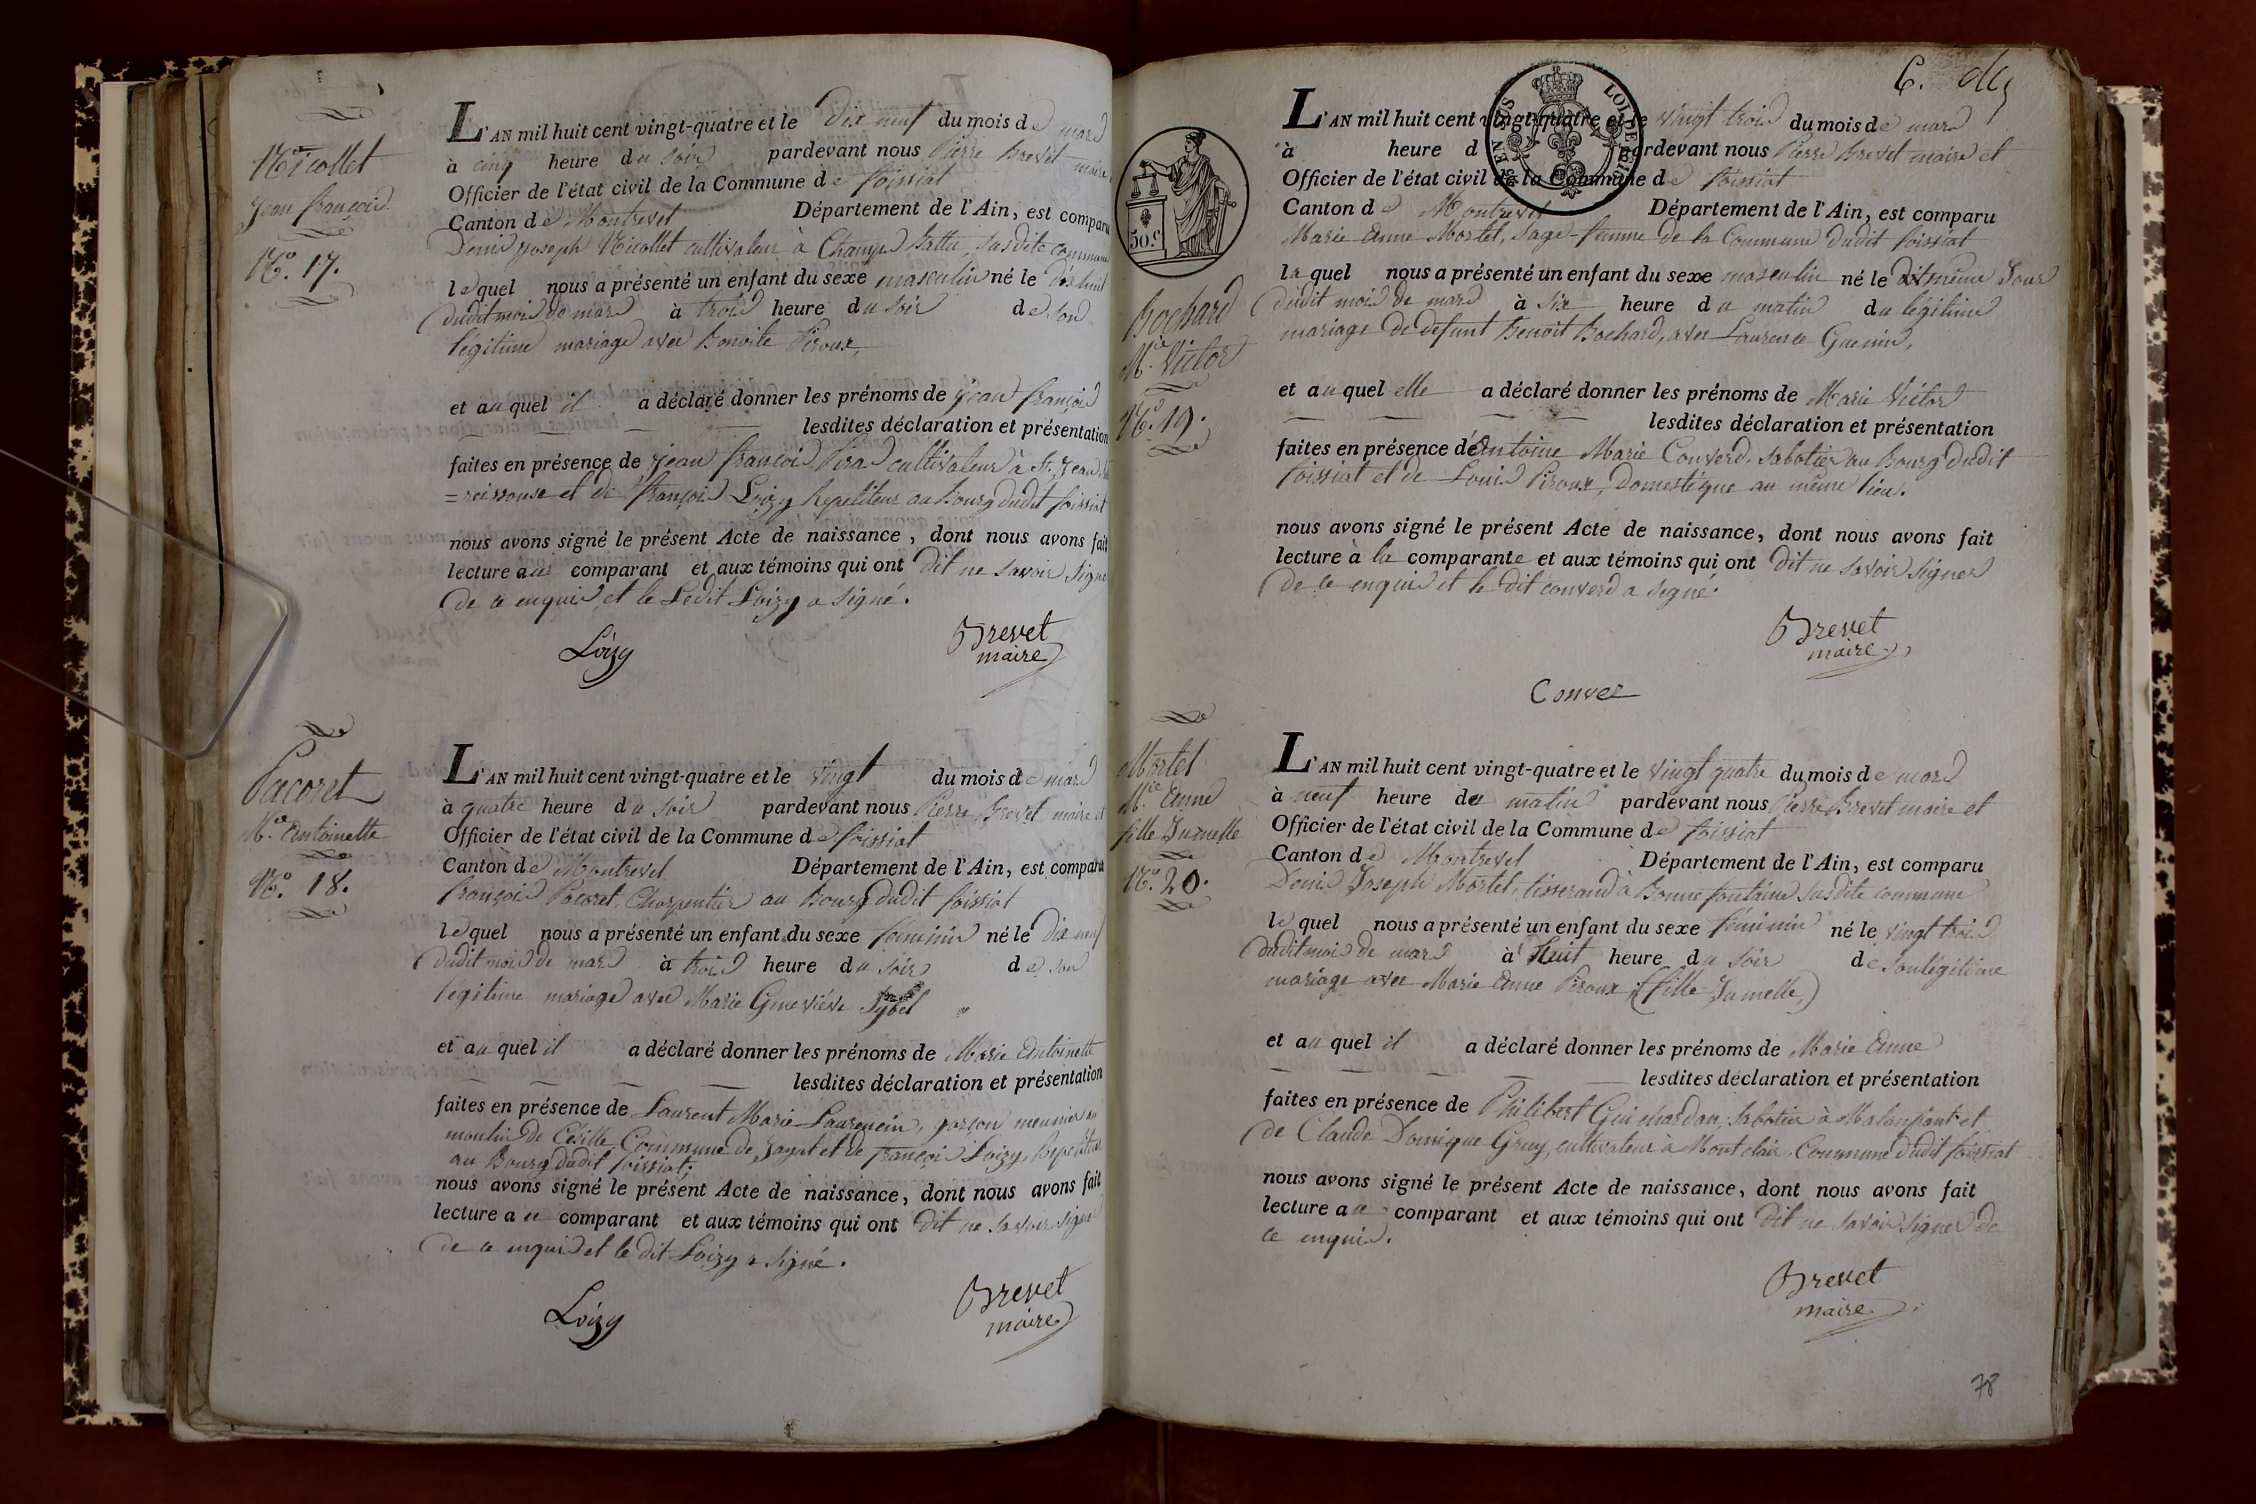 Nicollet
Jean françois
N.º 17.
L'AN mil huit cent vingt-quatre et le Dix neuf du mois de mars
à cinq heure du soir pardevant nous Pierre Brevet maire
Officier de l'état civil de la Commune de foissiat
Canton de Montrevel Département de l'Ain, est comparu
Denis joseph Nicollet cultivateur à Champ susdite commune
lequel nous a présenté un enfant du sexe masculin né le dix huit
dudit mois de mars à trois heure du soir de son
légitime mariage avec Benoite Piroux,
et auquel il a déclaré donner les prénoms de jean françois
lesdites déclaration et présentation
faites en présence de jean françois Piras cultivateur à St. Jean
=reissouse et de françois Loizy Repetiteur au Bourg dudit foissiat
nous avons signé le présent Acte de naissance, dont nous avons fait
lecture au comparant et aux témoins qui ont dit ne savoir signer
de ce enquis et le Ledit Loizy a signé.
Loizy
Brevet
maire
Pacoret
M.ie Antoinette
N.º 18.
L'AN mil huit cent vingt-quatre et le vingt du mois de mars
à quatre heure du soir pardevant nous Pierre Brevet maire et
Officier de l'état civil de la Commune de foissiat
Canton de Montrevel Département de l'Ain, est comparu
françois Pacoret, Charpentier au Bourg dudit foissiat
lequel nous a présenté un enfant du sexe feminin né le dix neuf
dudit mois de mars à trois heure du soir de son
legitime mariage avec Marie Geneviéve Sybel
et auquel il a déclaré donner les prénoms de Marie Antoinette
lesdites déclaration et présentation
faites en présence de Laurent Marie Laurencin, garçon meunier au
moulin de Césille Commune de Jayat et de françois Loizy, Repetiteur
au Bourg dudit foissiat;
nous avons signé le présent Acte de naissance, dont nous avons fait
lecture au comparant et aux témoins qui ont dit ne savoir signer
de ce enquis et le dit Loizy a signé.
Loizy
Brevet
maire
6.
50.c
LOI DE
Bochard
M.ie Victor
N.º 19.
L'AN mil huit cent vingt-quatre et le vingt trois du mois de mars
à heure d pardevant nous Pierre Brevet maire et
Officier de l'état civil de la Commune de foissiat
Canton de Montrevel Département de l'Ain, est comparu
Marie Anne Mortel, Sage-femme de la Commune dudit foissiat
laquel nous a présenté un enfant du sexe masculin né le dit même Jour
dudit mois de mars à six heure du matin du légitime
mariage de defunt Benoit Bochard, avec Laurence Guenin,
et auquel elle a déclaré donner les prénoms de Marie Victor
lesdites déclaration et présentation
faites en présence de Antoine Marie Converd, sabotier au Bourg dudit
foissiat et de Louis Piroux, Domestique au même lieu.
nous avons signé le présent Acte de naissance, dont nous avons fait
lecture à la comparante et aux témoins qui ont dit ne savoir signer
de ce enquis et le dit converd a signé.
Brevet
maire
Conver
Mortel
M.ie Anne
fille Jumelle
N.º 20.
L'AN mil huit cent vingt-quatre et le vingt quatre du mois de mars
à neuf heure du matin pardevant nous Pierre Brevet maire et
Officier de l'état civil de la Commune de foissiat
Canton de Montrevel Département de l'Ain, est comparu
Denis Joseph Mortel, tisserand à Bonne fontaine susdite commune
lequel nous a présenté un enfant du sexe féminin né le vingt trois
dudit mois de mars à huit heure du soir de son légitime
mariage avec Marie Anne Piroux (fille Jumelle,)
et auquel il a déclaré donner les prénoms de Marie Anne
lesdites déclaration et présentation
faites en présence de Philibert Guichardan, Sabotier à et
de Claude Dominique Gruy, cultivateur à Montclair, Commune dudit foissiat
nous avons signé le présent Acte de naissance, dont nous avons fait
lecture au comparant et aux témoins qui ont dit ne savoir signer de
ce enquis.
Brevet
maire
78